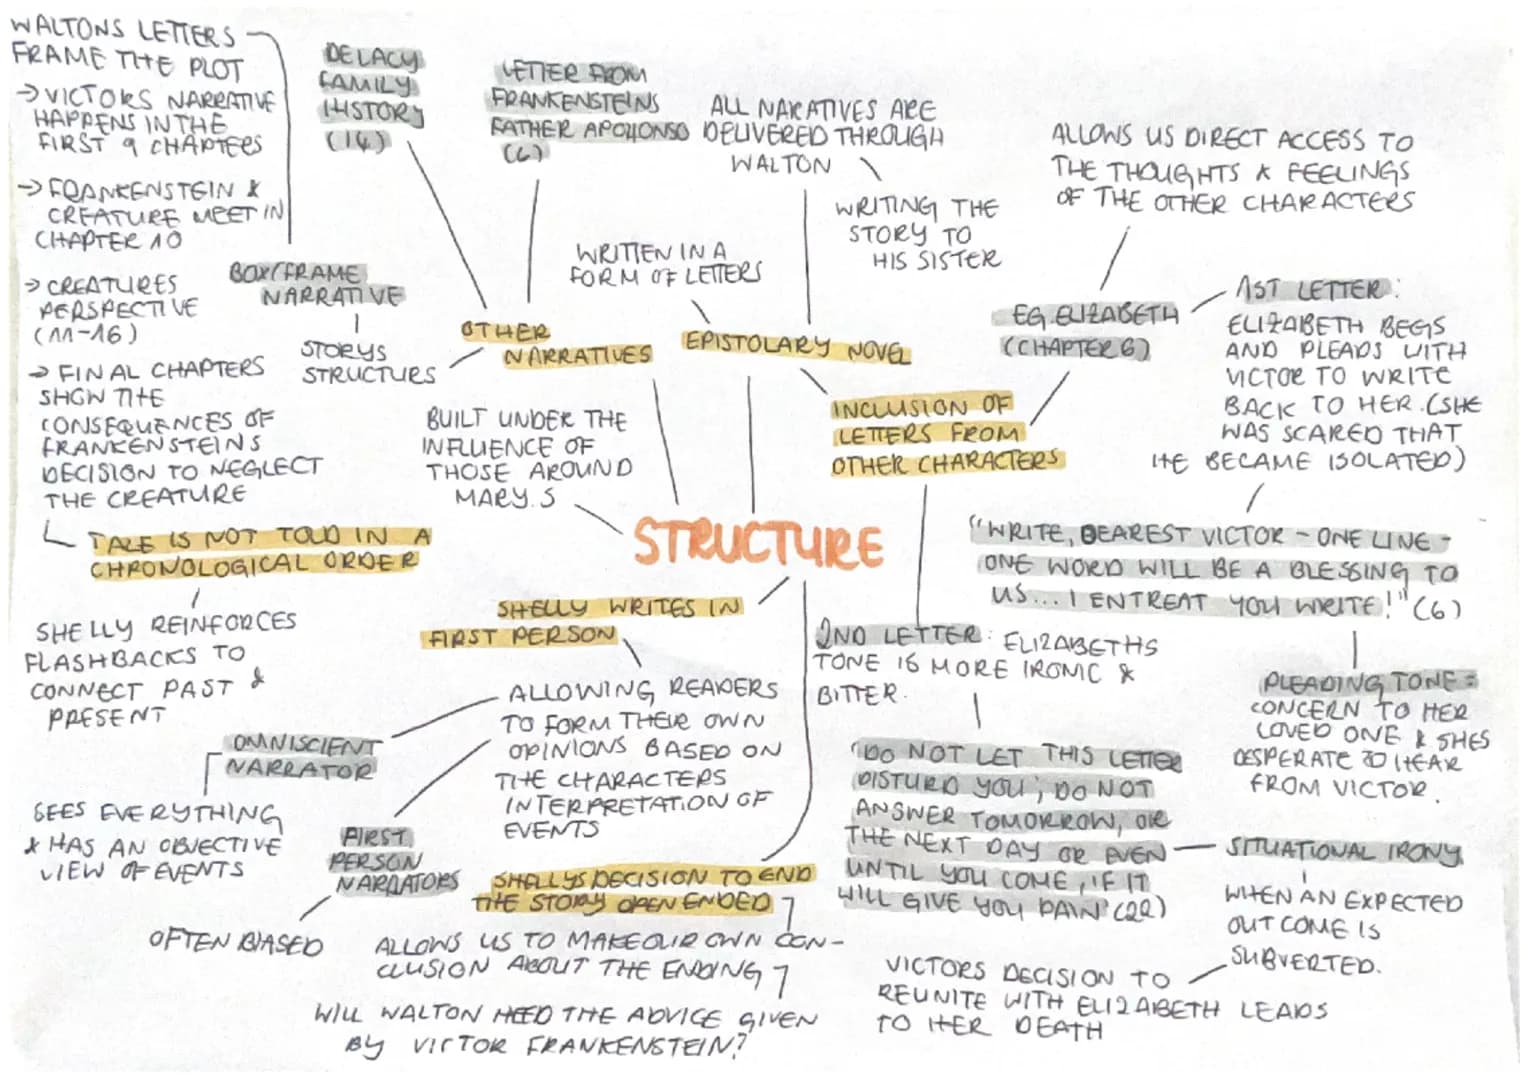 WALTONS LETTERS
FRAME THE PLOT
→ VICTORS NARRATIVE
HAPPENS IN THE
FIRST 9 CHAPTERS
→ FRANKENSTEIN &
CREATURE MEET IN
CHAPTER 10
→ CREATURES
PERSPECTIVE
(11-16)
→ FINAL CHAPTERS
SHOW THE
CONSEQUENCES OF
FRANKENSTEINS
DECISION TO NEGLECT
THE CREATURE
TALE IS NOT TOLD IN A
CHRONOLOGICAL ORDER
SHELLY REINFORCES
FLASHBACKS TO
CONNECT PAST &
PRESENT
BOX/FRAME
NARRATIVE
STORYS
STRUCTURS
DELACY
FAMILY
HISTORY
(14)
LETTER FROM
FRANKENSTEINS
FATHER APOLLONSO
(6)
OTHER
NARRATIVES
ALL NARATIVES ARE
DELIVERED THROUGH
WALTON
WRITING THE
STORY TO
HIS SISTER
WRITTEN IN A
FORM OF LETTERS
EPISTOLARY NOVEL
BUILT UNDER THE
INFLUENCE OF
THOSE AROUND
MARY.S
STRUCTURE
INCLUSION OF
LETTERS FROM
OTHER CHARACTERS
ALLOWS US DIRECT ACCESS TO
THE THOUGHTS & FEELINGS
OF THE OTHER CHARACTERS
EG. ELIZABETH
(CHAPTER 6)
1ST LETTER:
ELIZABETH BEGIS
AND PLEADS WITH
VICTOR TO WRITE
BACK TO HER. (SHE
WAS SCARED THAT
HE BECAME ISOLATED)
"WRITE, DEAREST VICTOR - ONE LINE -
ONE WORD WILL BE A BLESSING TO
US... I ENTREAT YOU WRITE!" (6)
PLEADING TONE =
CONCERN TO HER
LOVED ONE & SHES
DESPERATE TO HEAR
FROM VICTOR.
2ND LETTER: ELIZABETHS
TONE IS MORE IRONIC &
BITTER.
'DO NOT LET THIS LETTER
DISTURD YOU; DO NOT
ANSWER TOMORROW, OR
THE NEXT DAY OR EVEN
UNTIL YOU COME, IF IT
WILL GIVE YOU PAIN' (22)
SITUATIONAL IRONY
WHEN AN EXPECTED
OUT COME IS
SUBVERTED.
VICTORS DECISION TO
REUNITE WITH ELIZABETH LEADS
TO HER DEATH
SHELLY WRITES IN
FIRST PERSON
ALLOWING READERS
TO FORM THEIR OWN
OPINIONS BASED ON
THE CHARACTERS
INTERPRETATION OF
EVENTS
OMNISCIENT
NARRATOR
SEES EVERYTHING
& HAS AN OBJECTIVE
VIEW OF EVENTS
FIRST
PERSON
NARRATORS
OFTEN BIASED
SHELLYS DECISION TO END
THE STORY OPEN ENDED
ALLOWS US TO MAKE OUR OWN CON-
CLUSION ABOUT THE ENDING
WILL WALTON HEED THE ADVICE GIVEN
BY VICTOR FRANKENSTEIN?